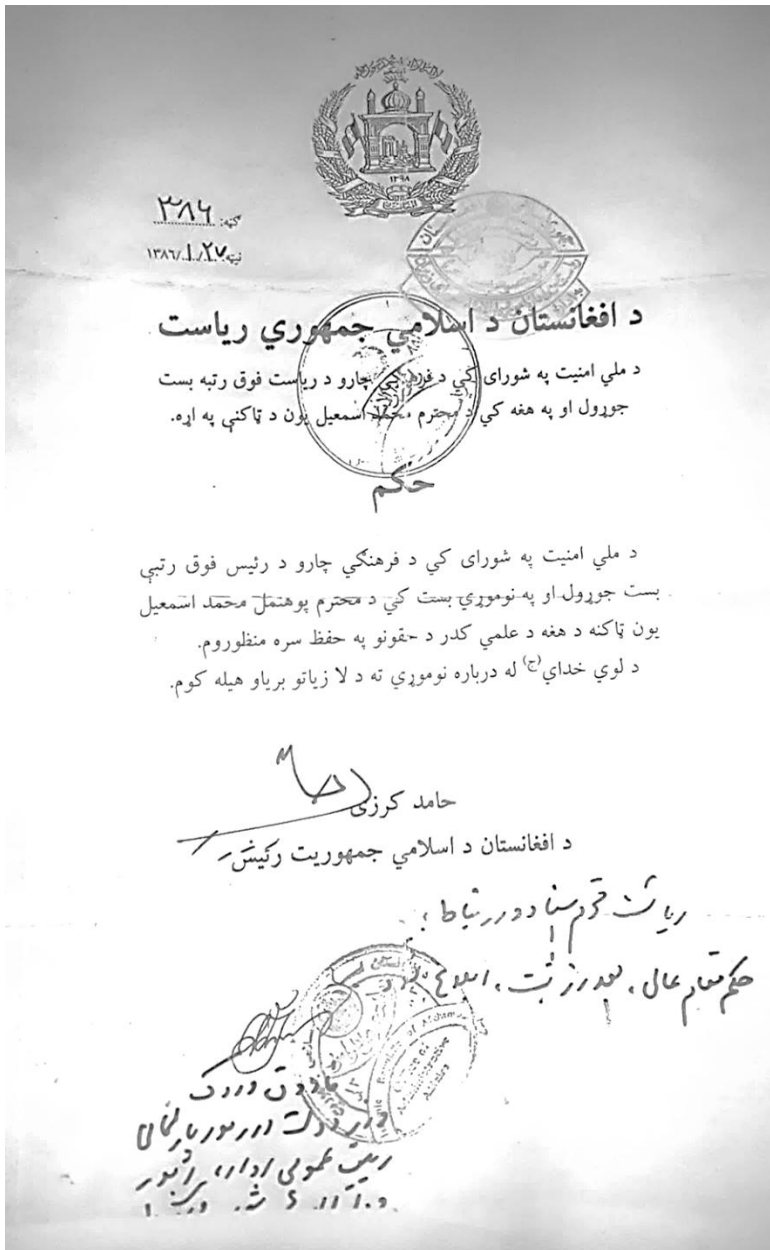 ۱۲۹۸
ګڼه: ۳۸۶
نېټه ۱۳۸۶/۱/۲۷
د افغانستان د اسلامي جمهوري ریاست
د ملي امنیت په شورای کي د فرهنګي چارو د ریاست فوق رتبه بست
جوړول او په هغه کي د محترم محمد اسمعیل یون د ټاکني په اړه.
حکم
د ملي امنیت په شورای کي د فرهنګي چارو د رئیس فوق رتبې
بست جوړول او په نوموړي بست کي د محترم پوهنمل محمد اسمعیل
یون ټاکنه د هغه د علمي کدر د حقونو په حفظ سره منظوروم.
د لوي خدای(ج) له درباره نوموړي ته د لا زیاتو بریاو هیله کوم.
حامد کرزی
د افغانستان د اسلامي جمهوریت رئیس
ریاست اسناد و ارتباط:
حکم مقام عالی، بعد از ثبت، اصلاح
فاروق وردک
وزیر دولت در امور پارلمانی
رئیس عمومی اداره امور